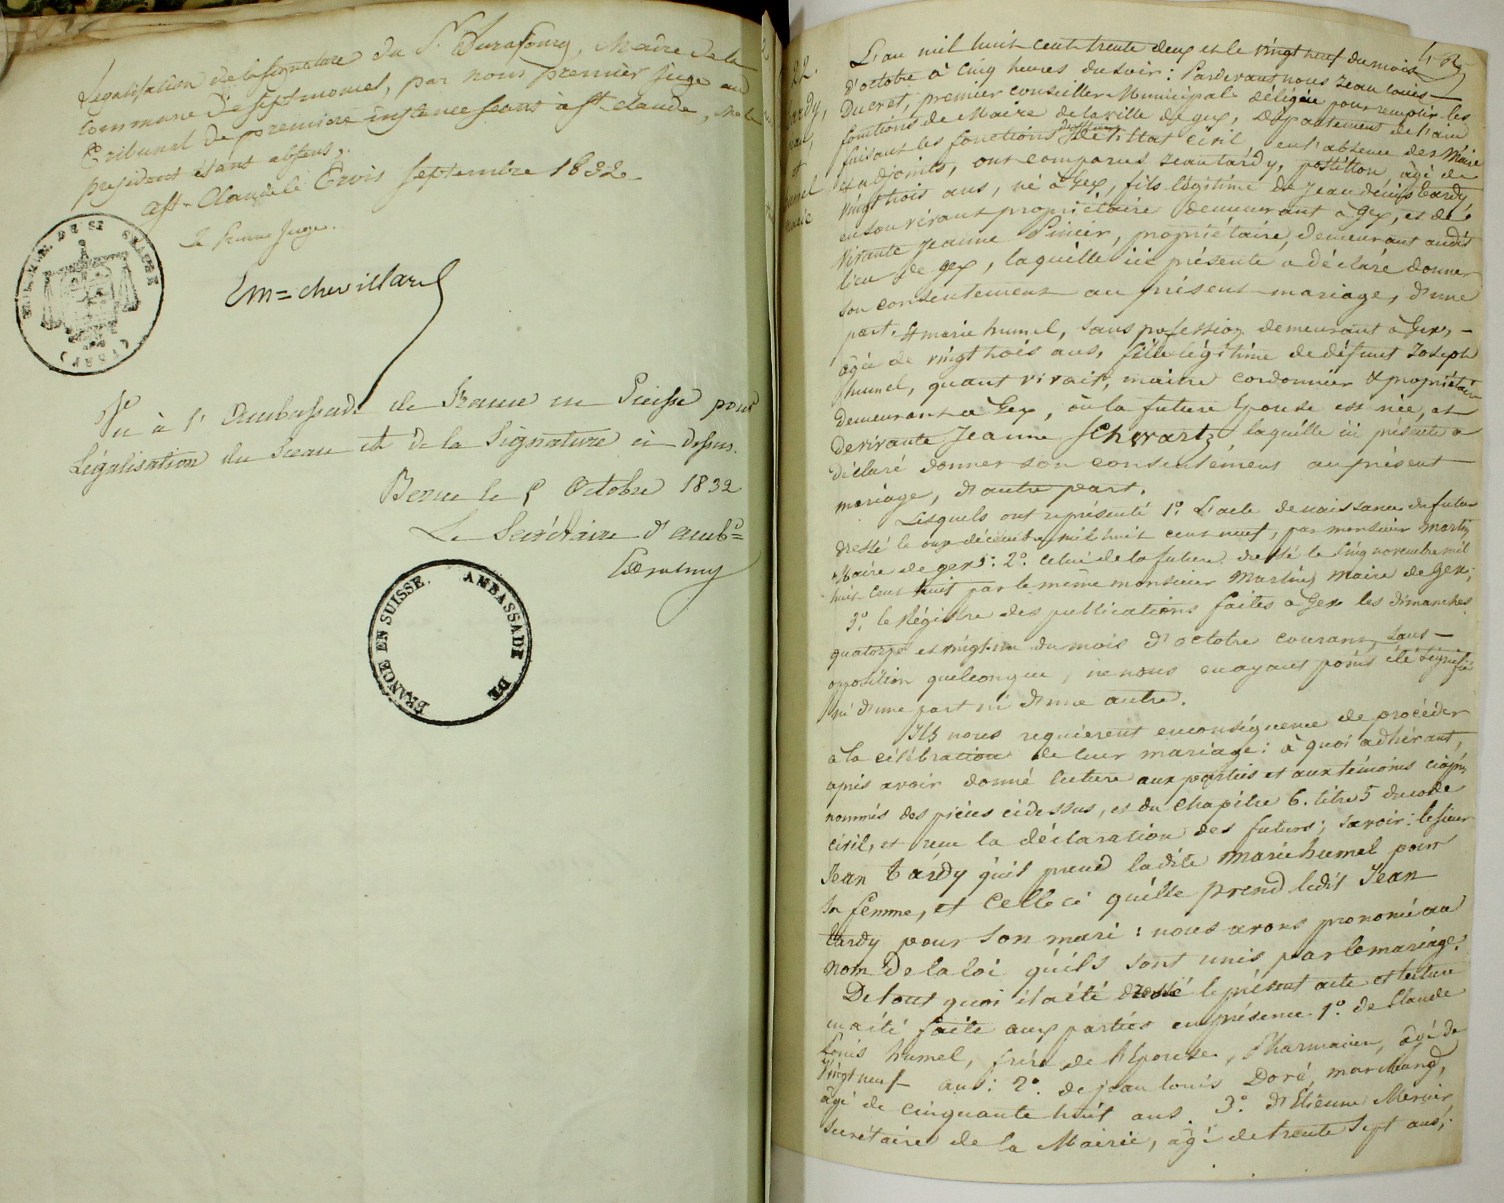 Légalisation de la signature du Sr Durafourg, Maire de la
commune de Septmoncel, par nous premier Juge au
Tribunal de premiere instance seant à St. claude, Mr le
president étant absent.
a St-Claude le Trois Septembre 1832.
Le Premier Juge.
Em=chevillard
Vu à l'Ambassade de France en Suisse pour
Légalisation du Sceau et de la Signature ci dessus.
Berne le 5 Octobre 1832
Le Secrétaire d'amb=
AMBASSADE DE FRANCE EN SUISSE.
22.
L'an mil huit cent trente deux et le vingt neuf du mois
d'octobre à cinq heures du soir: Pardevant nous Jean Louis
Ducret, premier conseiller Municipal délégué pour remplir les
fonctions de Maire de la ville de gex, Département de l'ain
faisant les fonctions de l'Etat civil, en l'absence des Maire
et adjoints, ont comparus Jean tardy, postillon, âgé de
vingt trois ans, né à Gex, fils légitime de Jean denis tardy
en son vivant propriétaire demeurant à Gex, et de
vivante Jeanne Pincir, propriétaire, demeurant audit
lieu de gex, laquelle ici présente a déclaré donner
son consentement au présent mariage, d'une
part. Et marie humel, sans profession demeurant à Gex,
âgée de vingt trois ans, fille légitime de défunt Joseph
humel, quant vivait, maitre cordonnier & propriétaire
demeurant à Gex, où la future Epouse est née, et
de vivante Jeanne Schwartz laquelle ici présente a
déclaré donner son consentement au présent
mariage, d'autre part.
Lesquels ont représenté 1.° L'acte de naissance du futur
dressé le onze décembre mil huit cent neuf, par monsieur Martin
Maire de gex: 2.° celui de la future dressé le cinq novembre mil
huit cent huit par le même monsieur Martin, maire de Gex;
3.° le Régistre des publications faites à Gex les dimanches
quatorze et vingt-un du mois d'octobre courant, sans
opposition quelconque, ne nous en ayant point été signifié
ni d'une part ni d'une autre.
Ils nous requierent en conséquence de procéder
à la célébration de leur mariage: à quoi adhérant,
après avoir donné lecture aux parties et aux témoins ciaprès
nommés des pièces cidessus, et du chapitre 6. titre 5 du code
civil, et reçu la déclaration des futurs; savoir: le sieur
Jean tardy qu'il prend ladite marie humel pour
sa femme, et celle ci qu'elle prend ledit Jean
tardy pour son mari: nous avons prononcé au
nom de la loi qu'ils sont unis par le mariage.
De tout quoi il a été dressé le présent acte et lecture
en a été faite aux parties en présence 1.° de Claude
Louis humel, frère de l'Epouse, Pharmacien, âgé de
vingt neuf ans: 2.° de jean louis Doré, marchand,
âgé de cinquante huit ans. 3.° d'Etienne Mercier
secrétaire de la Mairie, âgé de trente sept ans;